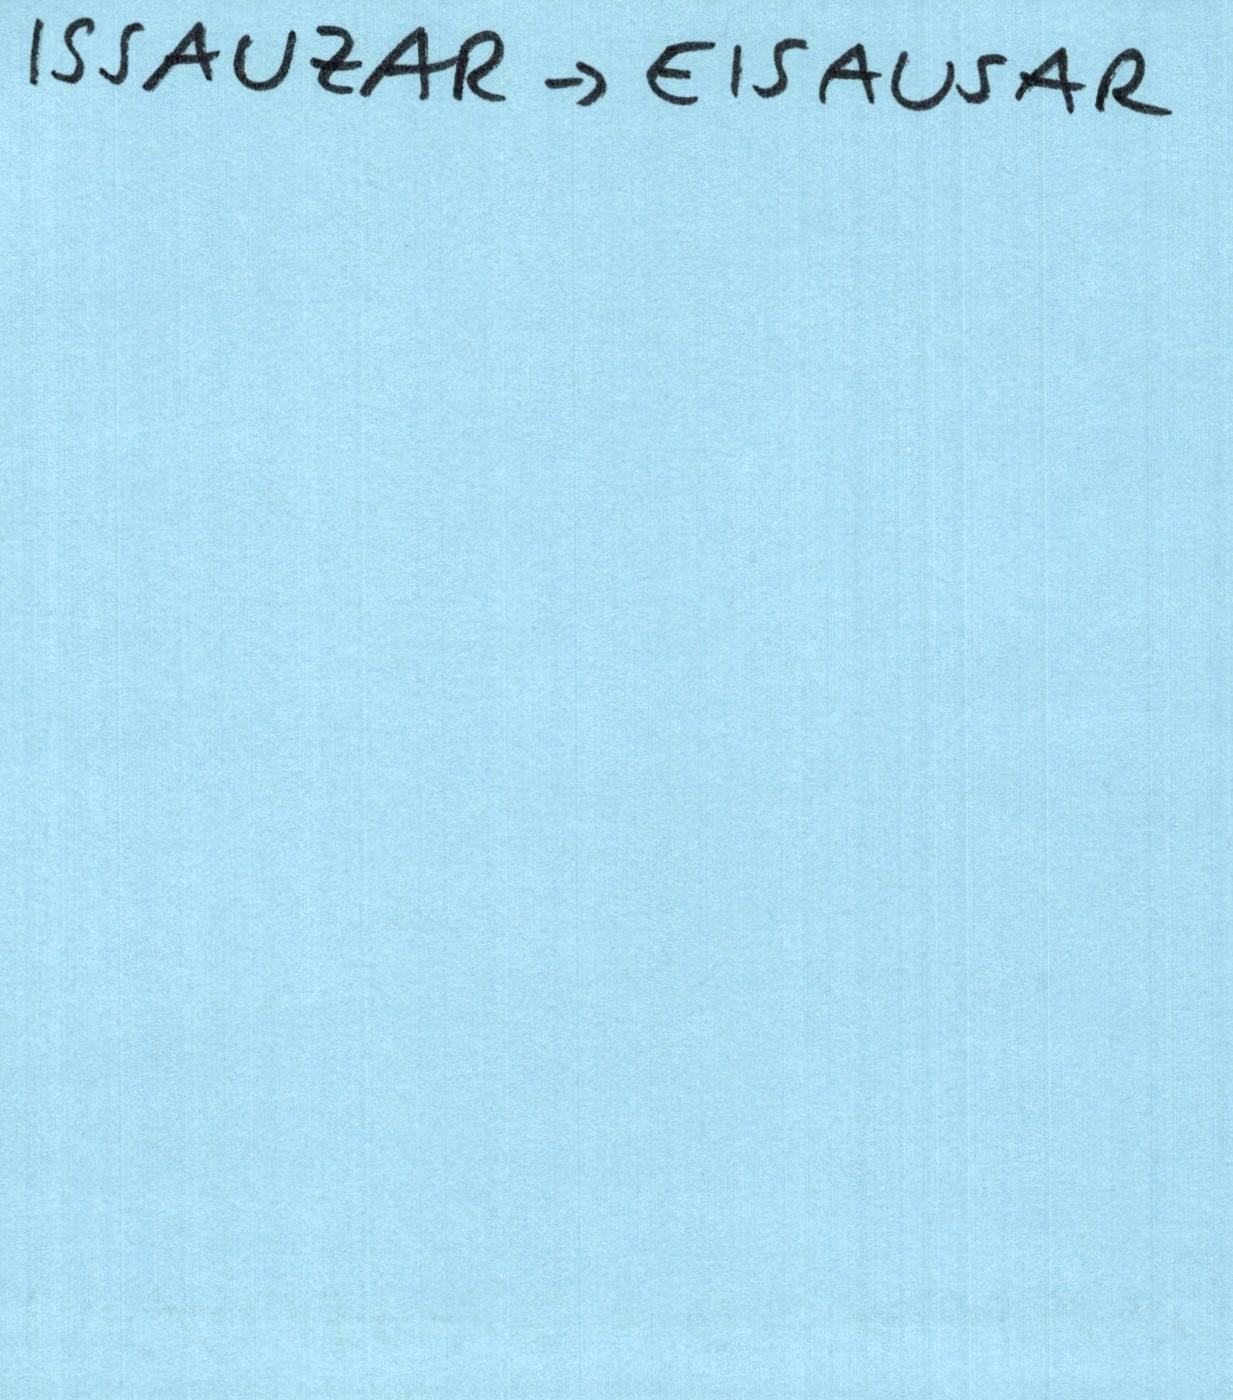 ISSAUZAR → EISAUSAR